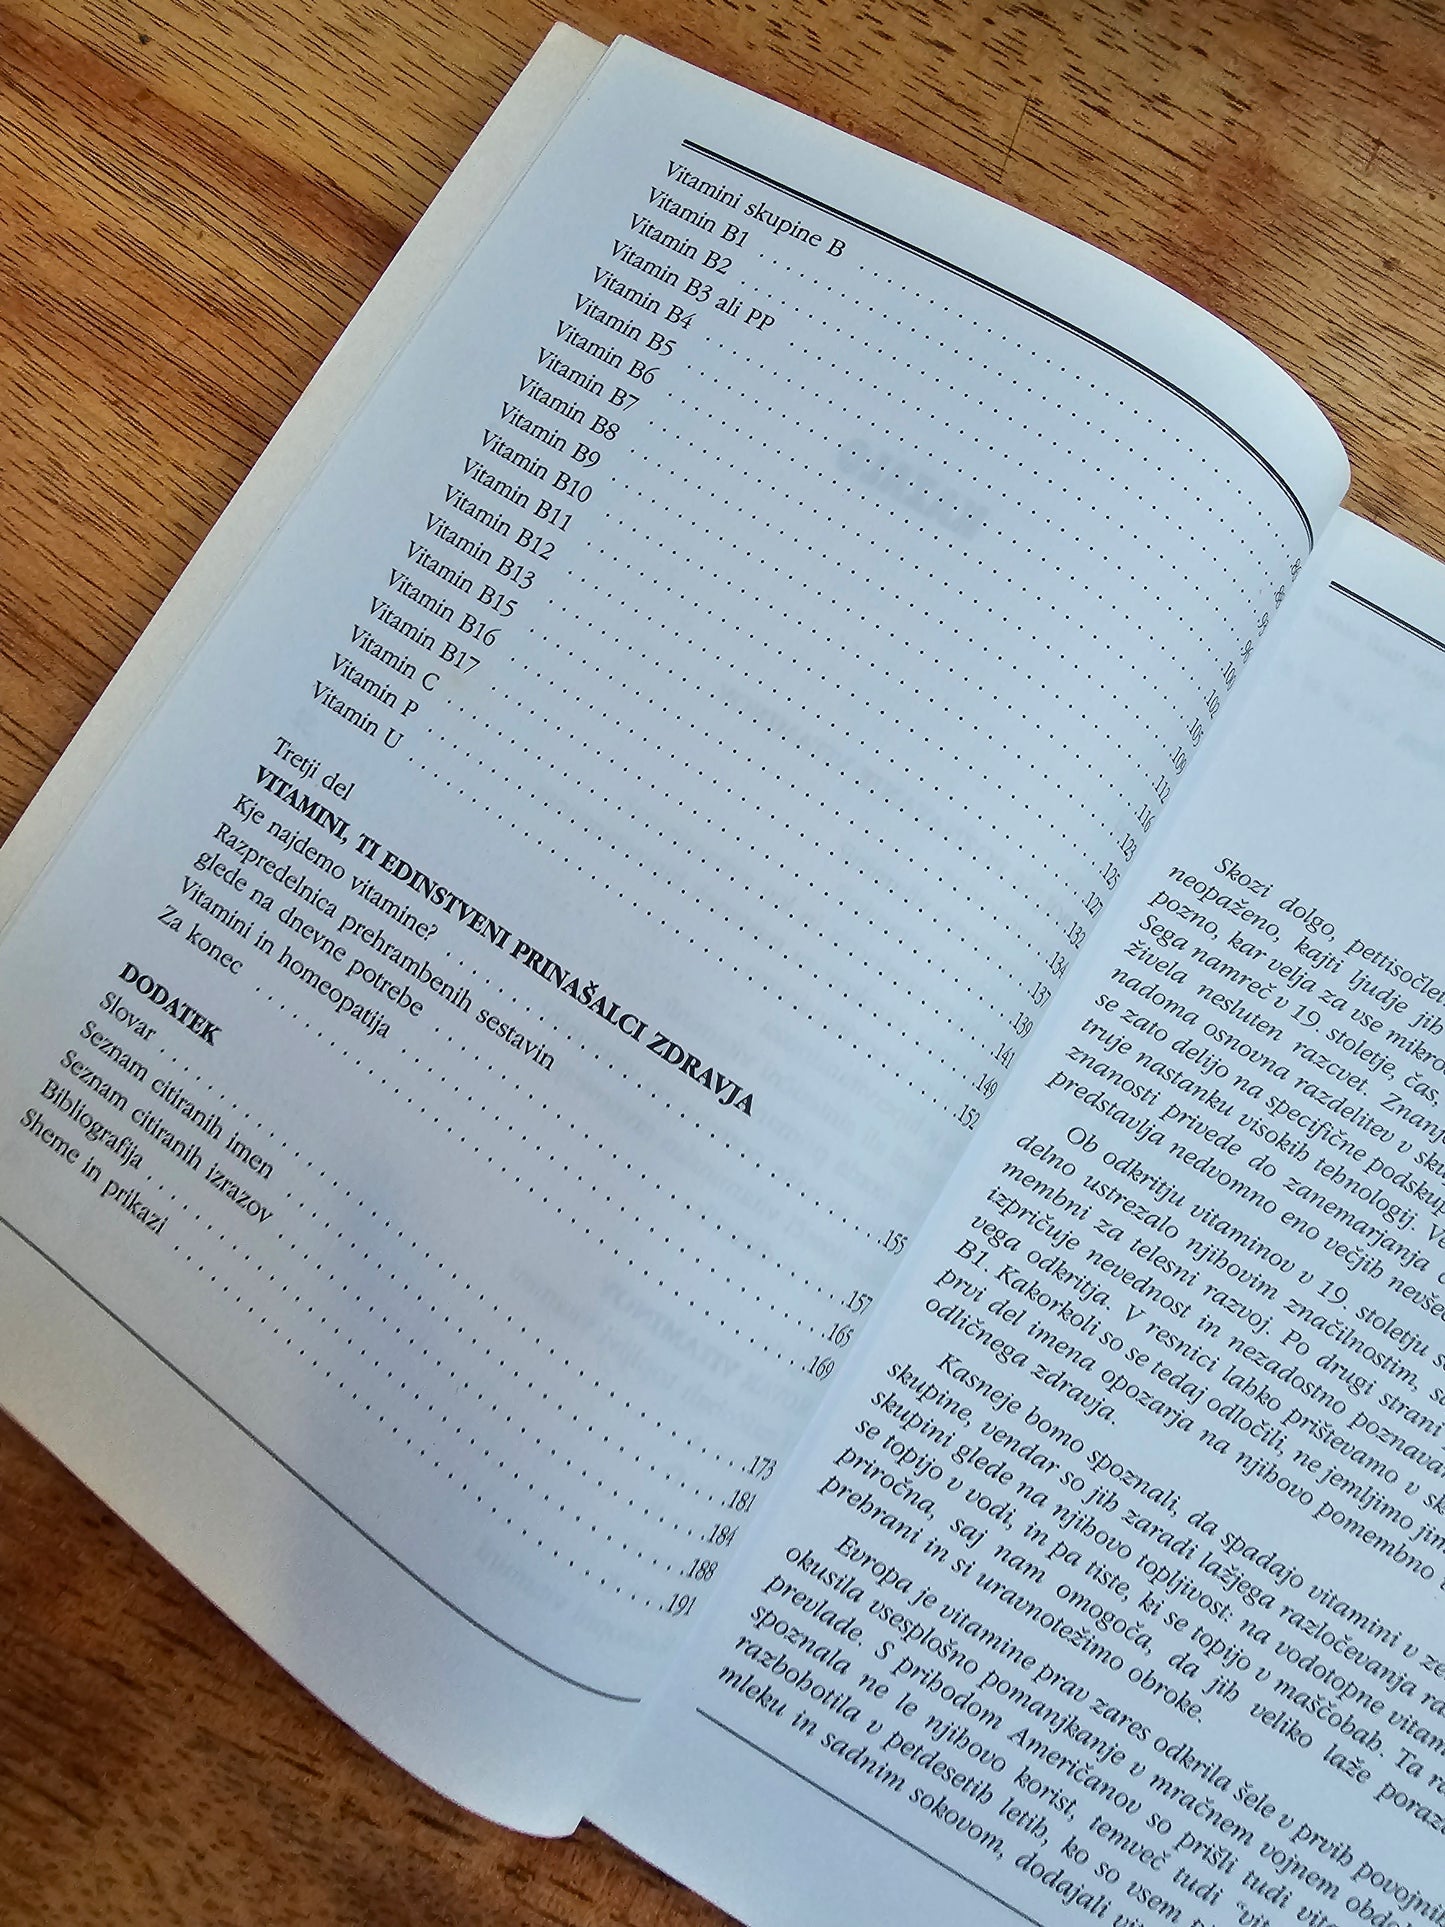 Vitamini skupine B
Vitamin B1
Vitamin B2
Vitamin B3 ali PP
Vitamin B4 . . . 100
Vitamin B5 . . . 102
Vitamin B6 . . . 105
Vitamin B7 . . . 109
Vitamin B8 . . . 112
Vitamin B9 . . . 116
Vitamin B10 . . . 123
Vitamin B11 . . . 125
Vitamin B12 . . . 127
Vitamin B13 . . . 132
Vitamin B15 . . . 134
Vitamin B16 . . . 137
Vitamin B17 . . . 139
Vitamin C . . . 141
Vitamin P . . . 149
Vitamin U . . . 152
Tretji del
VITAMINI, TI EDINSTVENI PRINAŠALCI ZDRAVJA
Kje najdemo vitamine? . . . 155
Razpredelnica prehrambenih sestavin
glede na dnevne potrebe . . . 157
Vitamini in homeopatija . . . 165
Za konec . . . 169
DODATEK
Slovar . . . 173
Seznam citiranih imen . . . 181
Seznam citiranih izrazov . . . 184
Bibliografija . . . 188
Sheme in prikazi . . . 191
Skozi dolgo,
neopaženo, kajti ljudje jih
pozno, kar velja za vse
Sega namreč v 19. stoletje, čas,
živela nesluten razcvet.
nadoma osnovna razdelitev v
se zato delijo na specifične
truje nastanku visokih tehnologij.
znanosti privede do zanemarjanja
predstavlja nedvomno eno večjih
Ob odkritju vitaminov v 19. stoletju
delno ustrezalo njihovim značilnostim,
membni za telesni razvoj. Po drugi strani
izpričuje nevednost in nezadostno
vega odkritja. V resnici lahko prištevamo v
B1. Kakorkoli so se tedaj odločili, ne jemljimo
prvi del imena opozarja na njihovo pomembno
odličnega zdravja.
Kasneje bomo spoznali, da spadajo vitamini v
skupine, vendar so jih zaradi lažjega razločevanja
skupini glede na njihovo topljivost: na vodotopne
se topijo v vodi, in pa tiste, ki se topijo v maščobah. Ta
priročna, saj nam omogoča, da jih veliko laže
prehrani in si uravnotežimo obroke.
Evropa je vitamine prav zares odkrila šele v prvih
okusila vsesplošno pomanjkanje v mračnem vojnem
prevlade. S prihodom Američanov so prišli tudi
spoznala ne le njihovo korist, temveč tudi
razbohotila v petdesetih letih, ko so vsem
mleku in sadnim sokovom, dodajali